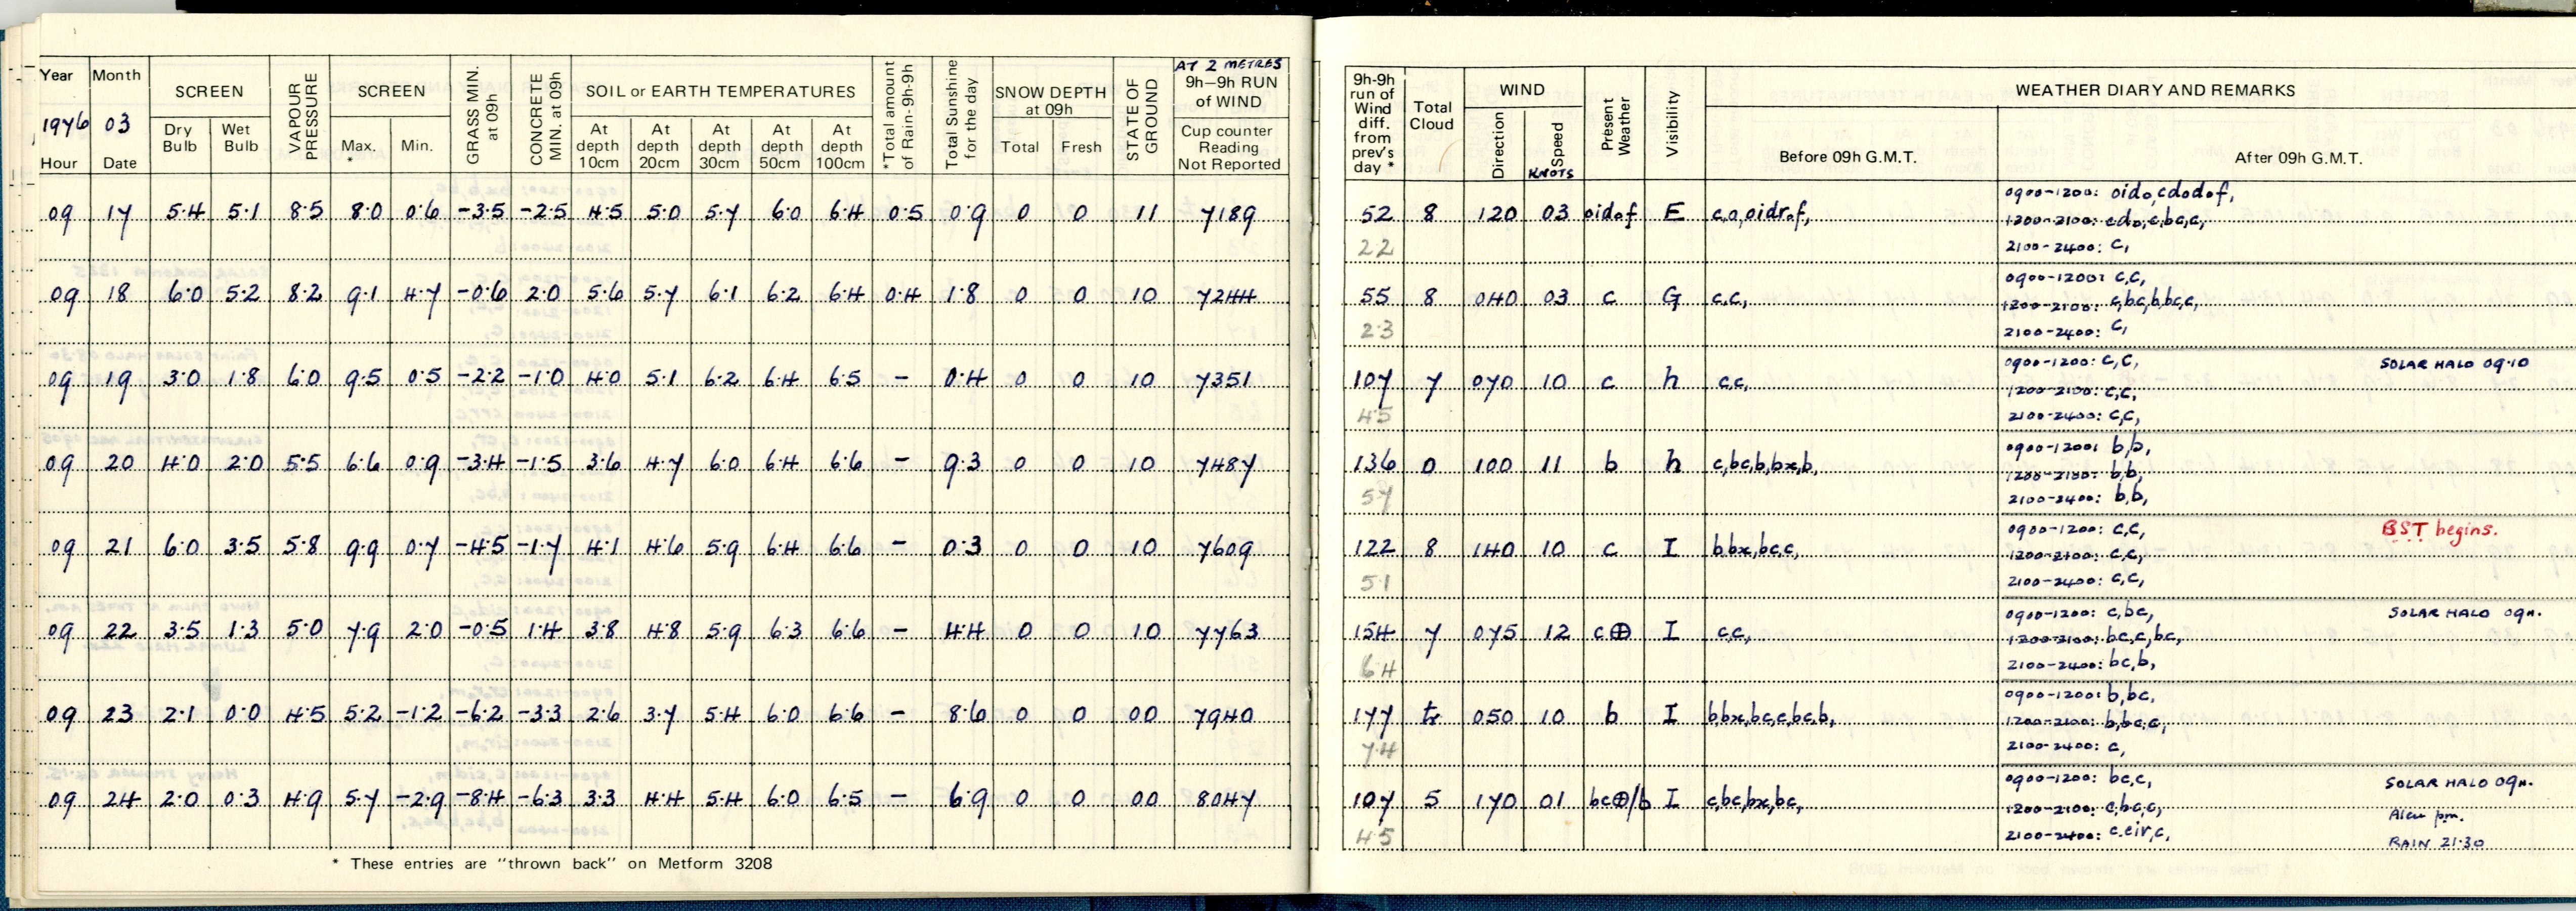 AT 2 METRES
Year Month SCREEN VAPOUR PRESSURE SCREEN GRASS MIN. at 09h CONCRETE MIN. at 09h SOIL or EARTH TEMPERATURES *Total amount of Rain-9h-9h Total Sunshine for the day SNOW DEPTH at 09h STATE OF GROUND 9h—9h RUN of WIND
1976 03 Dry Bulb Wet Bulb Max. * Min. At depth 10cm At depth 20cm At depth 30cm At depth 50cm At depth 100cm Total Fresh Cup counter Reading Not Reported
Hour Date
09 17 5·4 5·1 8·5 8·0 0·6 -3·5 -2·5 4·5 5·0 5·7 6·0 6·4 0·5 0·9 0 0 11 7189
09 18 6·0 5·2 8·2 9·1 4·7 -0·6 2·0 5·6 5·7 6·1 6·2 6·4 0·4 1·8 0 0 10 7244
09 19 3·0 1·8 6·0 9·5 0·5 -2·2 -1·0 4·0 5·1 6·2 6·4 6·5 - 0·4 0 0 10 7351
09 20 4·0 2·0 5·5 6·6 0·9 -3·4 -1·5 3·6 4·7 6·0 6·4 6·6 - 9·3 0 0 10 7487
09 21 6·0 3·5 5·8 9·9 0·7 -4·5 -1·7 4·1 4·6 5·9 6·4 6·6 - 0·3 0 0 10 7609
09 22 3·5 1·3 5·0 7·9 2·0 -0·5 1·4 3·8 4·8 5·9 6·3 6·6 - 4·4 0 0 10 7763
09 23 2·1 0·0 4·5 5·2 -1·2 -6·2 -3·3 2·6 3·7 5·4 6·0 6·6 - 8·6 0 0 00 7940
09 24 2·0 0·3 4·9 5·7 -2·9 -8·4 -6·3 3·3 4·4 5·4 6·0 6·5 - 6·9 0 0 00 8047
* These entries are "thrown back" on Metform 3208
9h-9h run of Wind diff. from prev's day * Total Cloud WIND Present Weather Visibility WEATHER DIARY AND REMARKS
Direction Speed KNOTS Before 09h G.M.T. After 09h G.M.T.
0900-1200: oido,cdodof,
52 8 120 03 oidof E c,o,oidrof, 1200-2100: cdo,c,bc,c,
22 2100-2400: c,
0900-1200: c,c,
55 8 040 03 c G c,c, 1200-2100: c,bc,b,bc,c,
2·3 2100-2400: c,
0900-1200: c,c, SOLAR HALO 09·10
107 7 070 10 c h c,c, 1200-2100: c,c,
45 2100-2400: c,c,
0900-1200: b,b,
136 0 100 11 b h c,bc,b,bx,b, 1200-2100: b,b,
57 2100-2400: b,b,
0900-1200: c,c, BST begins.
122 8 140 10 c I b,bx,bc,c, 1200-2100: c,c,
51 2100-2400: c,c,
0900-1200: c,bc, SOLAR HALO 09H.
154 7 075 12 c⊕ I c,c, 1200-2100: bc,c,bc,
64 2100-2400: bc,b,
0900-1200: b,bc,
177 tr 050 10 b I b,bx,bc,c,bc,b, 1200-2100: b,bc,c,
74 2100-2400: c,
0900-1200: bc,c, SOLAR HALO 09H.
107 5 170 01 bc⊕/b I c,bc,bx,bc, 1200-2100: c,bc,c, Also pm.
45 2100-2400: c,eir,c, RAIN 21·30